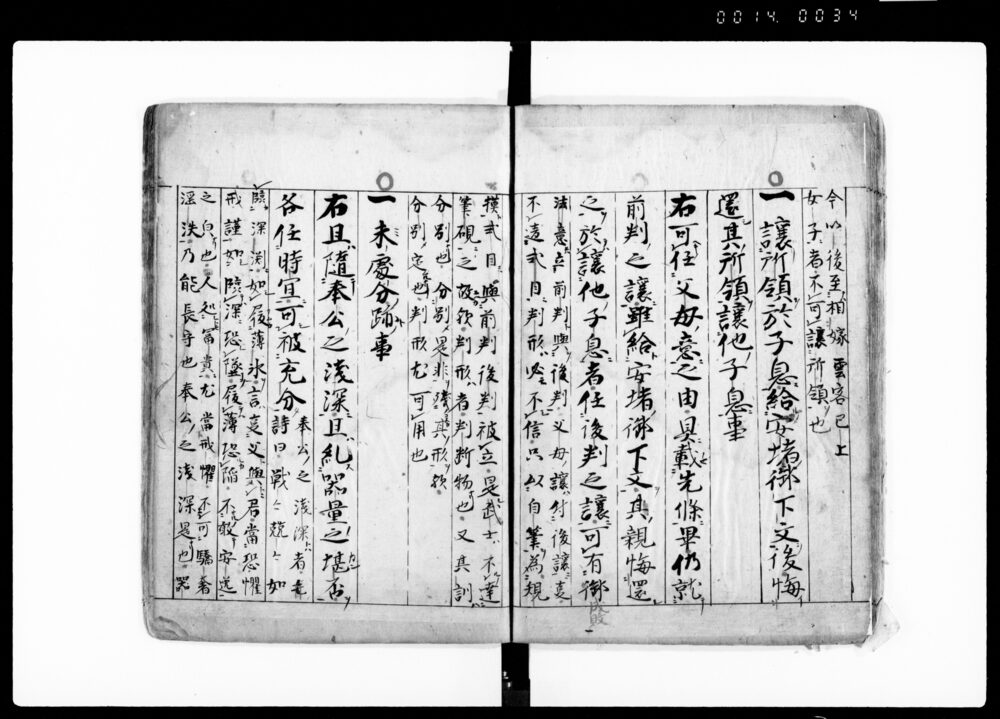 0014. 0034
令以後至相嫁雲客已上
女子者不可讓所領也
一讓所領於子息給安堵御下文後悔
還其所領讓他子息事
右可任父母意之由具載先條畢仍就
前判之讓雖給安堵御下文其親悔還
之於讓他子息者任後判之讓可有御
成敗
法意立前判與後判父母讓付後讓
不違式目判形必不信只以自筆為規
摸式目與前判後判被立是武士不達
筆硯之故欤判形者判断物也又其訓
分別也分別是非
分別定也判形尤可用也
一未處分跡事
右且隨奉公之淺深且糺器量之堪否
各任時宜可被充分
奉公之淺深者
詩曰戰々兢々如
臨深渕如履薄氷言事父與君當恐懼
戒謹如臨深恐墜履薄恐陥不敢安逸
之皃也人処冨貴尤當戒懼不可驕奢
淫泆乃能長守也奉公之淺深是也器